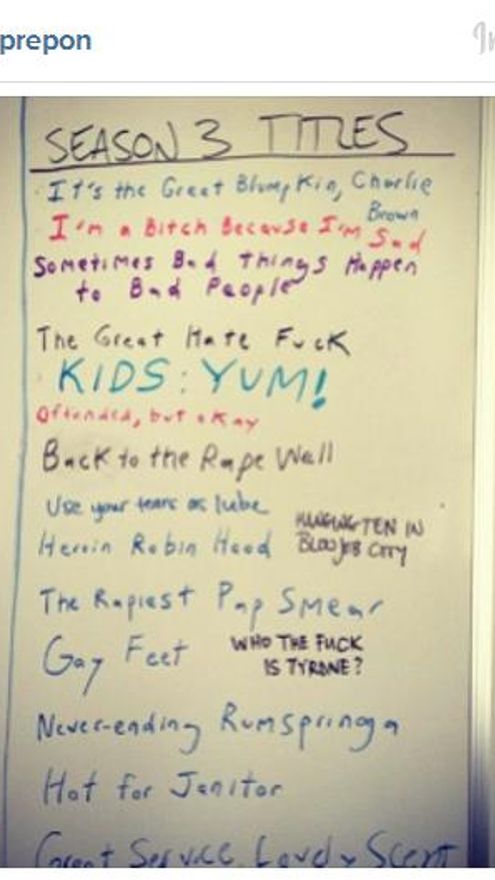 prepon
SEASON 3 TITLES
It's the Great Blumpkin, Charlie
Brown
I'm a Bitch Because I'm Sad
Sometimes Bad Things Happen
to Bad People
The Great Hate Fuck
KIDS: YUM!
Offended, but okay
Back to the Rape Wall
Use your tears as lube
HANGING TEN IN
BLOWJOB CITY
Heroin Robin Hood
The Rapiest Pap Smear
Gay Feet
WHO THE FUCK
IS TYRONE?
Never-ending Rumspringa
Hot for Janitor
Great Service, Lovely Scent